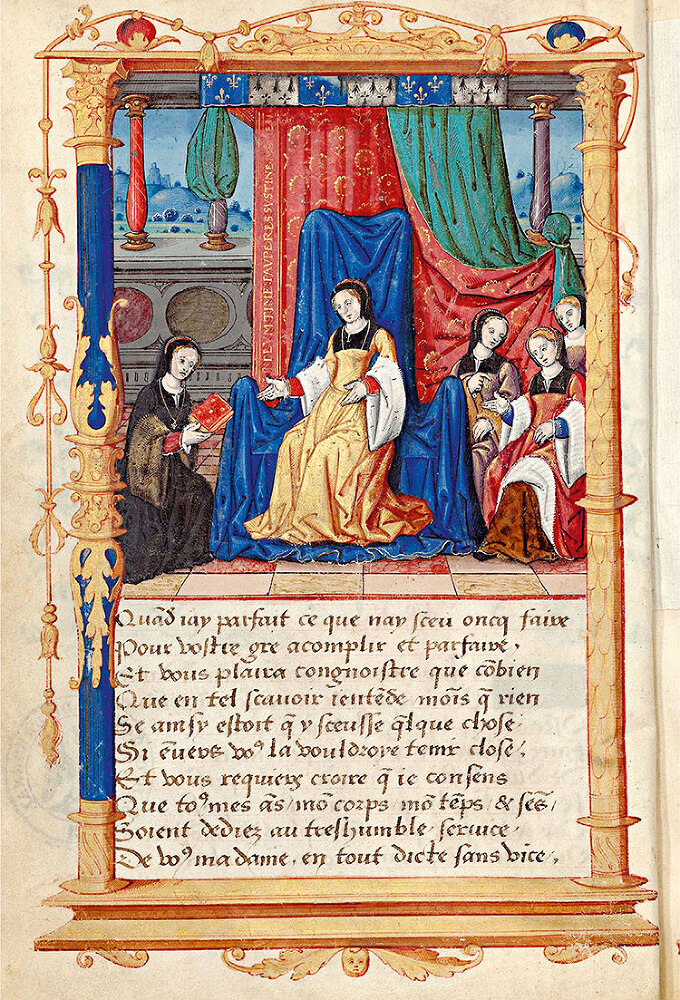 Quãd iay parfait ce que nay sceu oncq faire
Pour vostre gre acomplir et parfaire,
Et vous plaira congnoistre que cõbien
Que en tel scauoir ientẽde moĩs q̃ rien
Se ainsy estoit q̃ y sceusse q̃lque chose,
Si ẽuers voꝰ la vouldroye tenir close,
Et vous requiers croire q̃ ie consens
Que toꝰ mes ãs/ mõ corps/ mõ tẽps/ & sẽs/
Soient dediez au treshumble/ seruice,
De voꝰ madame, en tout dicte sans vice,